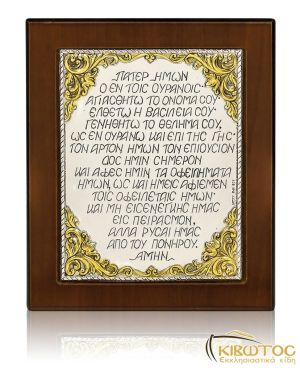 ΠΑΤΕΡ ΗΜΩΝ
Ο ΕΝ ΤΟΙΣ ΟΥΡΑΝΟΙΣ·
ΑΓΙΑΣΘΗΤΩ ΤΟ ΟΝΟΜΑ ΣΟΥ·
ΕΛΘΕΤΩ Η ΒΑΣΙΛΕΙΑ ΣΟΥ·
ΓΕΝΗΘΗΤΩ ΤΟ ΘΕΛΗΜΑ ΣΟΥ,
ΩΣ ΕΝ ΟΥΡΑΝΩ ΚΑΙ ΕΠΙ ΤΗΣ ΓΗΣ·
ΤΟΝ ΑΡΤΟΝ ΗΜΩΝ ΤΟΝ ΕΠΙΟΥΣΙΟΝ
ΔΟΣ ΗΜΙΝ ΣΗΜΕΡΟΝ
ΚΑΙ ΑΦΕΣ ΗΜΙΝ ΤΑ ΟΦΕΙΛΗΜΑΤΑ
ΗΜΩΝ, ΩΣ ΚΑΙ ΗΜΕΙΣ ΑΦΙΕΜΕΝ
ΤΟΙΣ ΟΦΕΙΛΕΤΑΙΣ ΗΜΩΝ·
ΚΑΙ ΜΗ ΕΙΣΕΝΕΓΚΗΣ ΗΜΑΣ
ΕΙΣ ΠΕΙΡΑΣΜΟΝ,
ΑΛΛΑ ΡΥΣΑΙ ΗΜΑΣ
ΑΠΟ ΤΟΥ ΠΟΝΗΡΟΥ.
ΑΜΗΝ
ΚΙΒΩΤΟΣ
Εκκλησιαστικά είδη